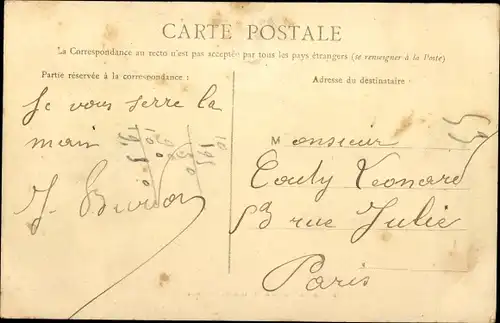 CARTE POSTALE
La Correspondance au recto n'est pas acceptée par tous les pays étrangers (se renseigner à la Poste)
Partie réservée à la correspondance :
Adresse du destinataire :
Je vous serre la
main
Monsieur
Léonard
3 rue Julie
Paris